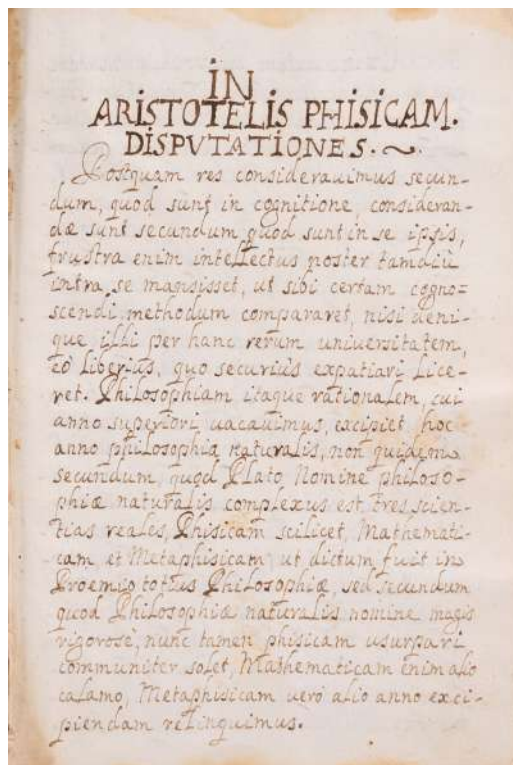 IN
ARISTOTELIS PHISICAM.
DISPVTATIONES.
Postquam res considerauimus secun-
dum, quod sunt in cognitione, consideran-
dæ sunt secundum quod sunt in se ipsis,
frustra enim intellectus noster tamdiù
intra se mansisset, ut sibi certam cogno=
scendi methodum compararet, nisi deni-
que illi per hanc rerum universitatem,
eò liberius, quo securiùs expatiari lice-
ret. Philosophiam itaque rationalem, cui
anno superiori uacauimus, excipiet, hoc
anno philosophia naturalis, non quidem
secundum, quod Plato Nomine philoso-
phiæ naturalis complexus est, tres scien-
tias reales, Phisicam scilicet, Mathemati-
cam, et Metaphisicam, ut dictum fuit in
Proemio totius Philosophiæ, sed secundum
quod Philosophiæ naturalis nomine magis
rigorose, nunc tamen phisicam usurpari
communiter solet, Mathematicam enim alio
calamo, Metaphisicam uerò alio anno exci-
piendam relinquimus.